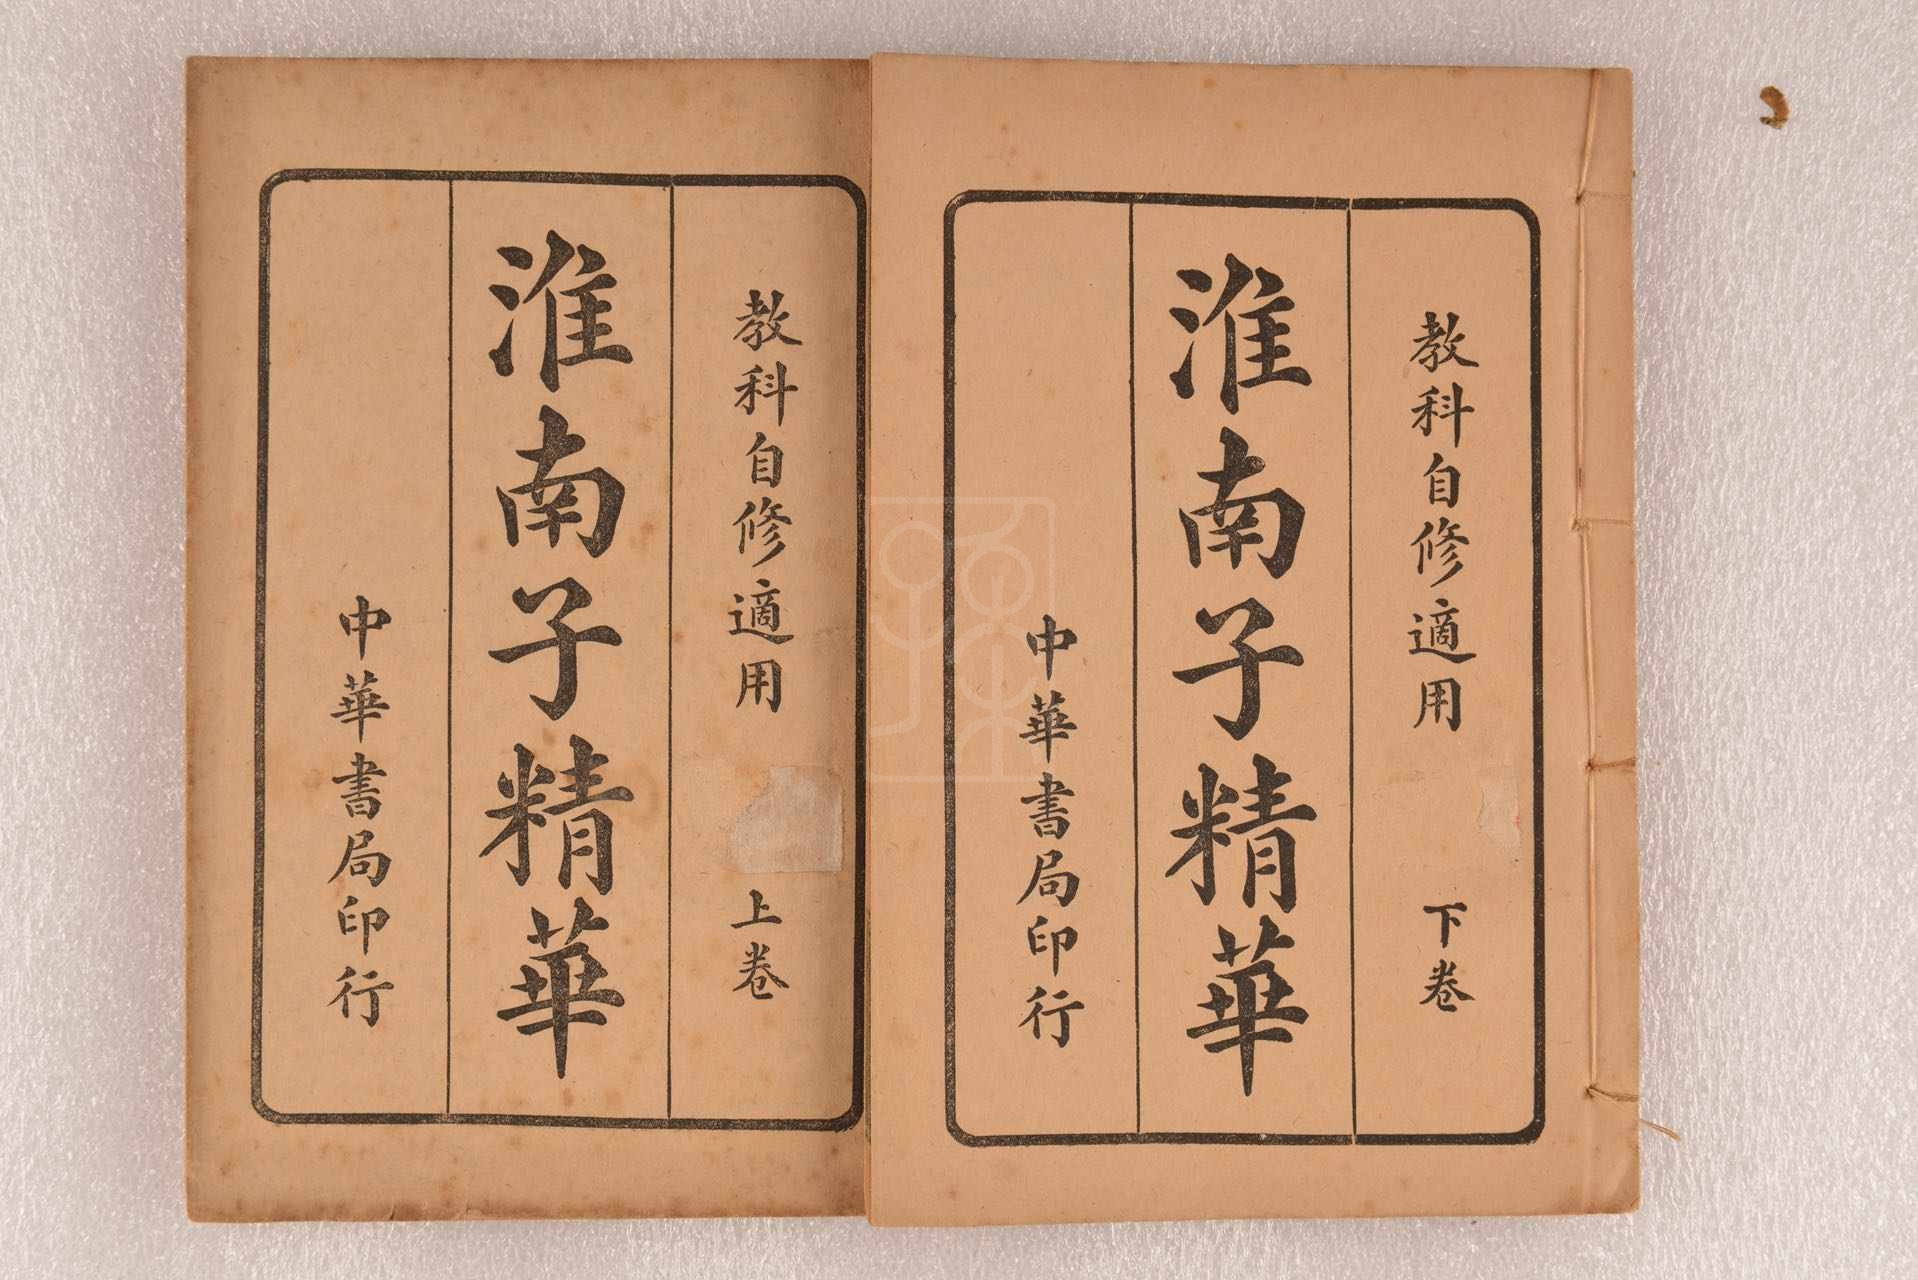 教科自修適用 下卷
淮南子精華
中華書局印行
教科自修適用 上卷
淮南子精華
中華書局印行